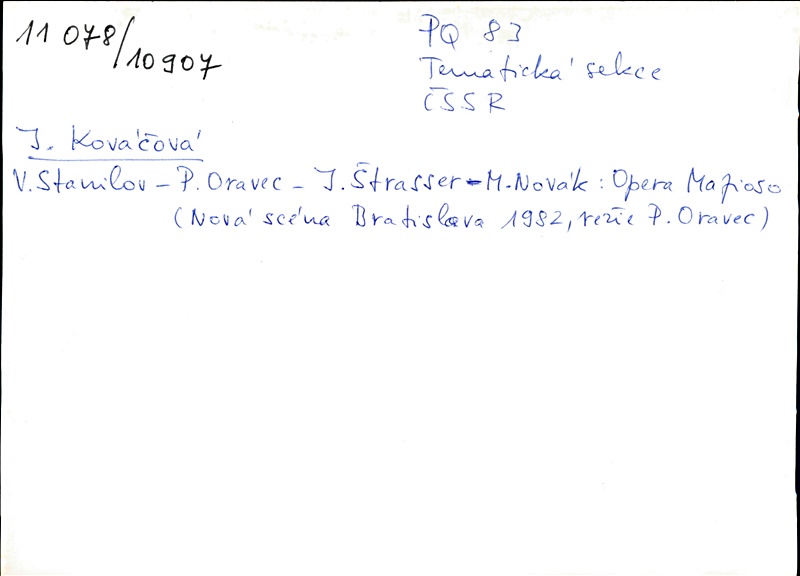 11 078/10907
PQ 83
Tematická sekce
ČSSR
J. Kováčová
V. Stanilov - P. Oravec - J. Štrasser - M. Novák: Opera Mafioso
(Nová scéna Bratislava 1982, režie P. Oravec)